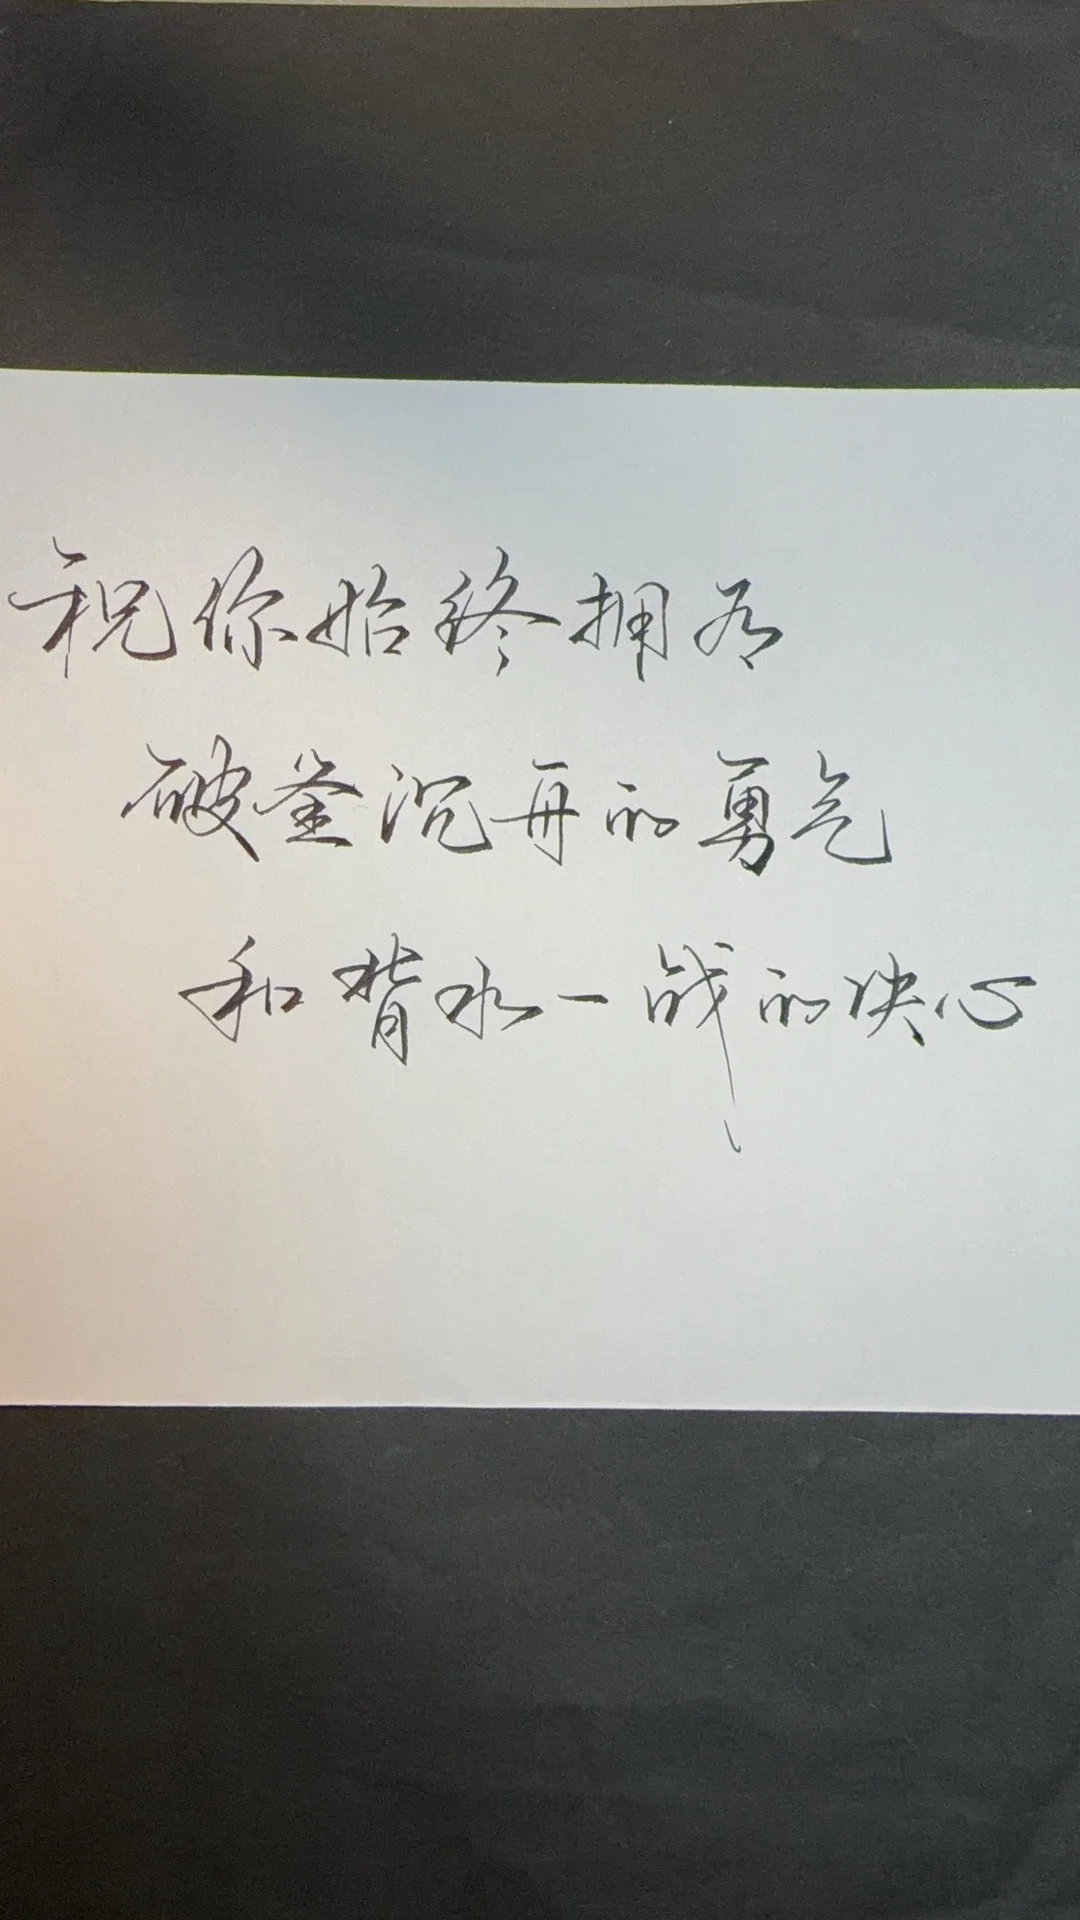 祝你始终拥有
破釜沉舟的勇气
和背水一战的决心